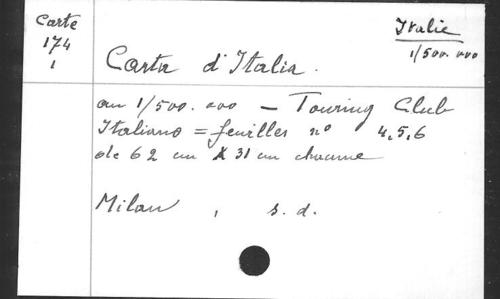 Carte
174
1
Italie
1/500.000
Carta d'Italia.
au 1/500.000 - Touring Club
Italiano = feuilles no 4,5,6
de 62 cm X 31 cm chacune
Milan, s. d.